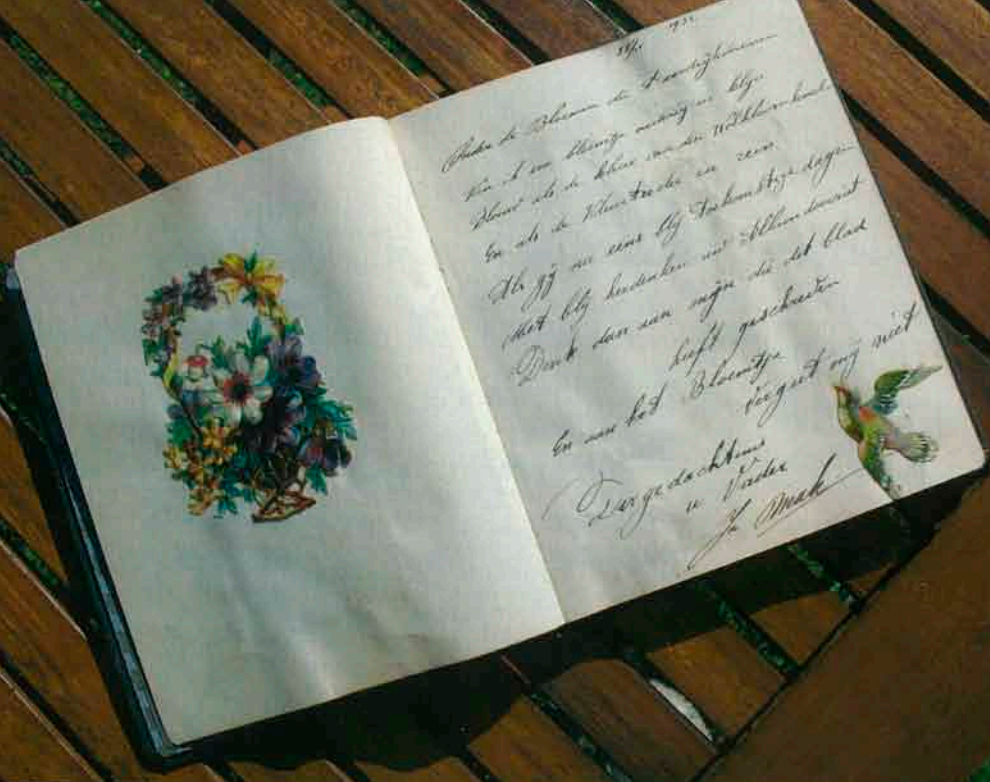 1932.
Onder de Bloemen die
Ben ik een bloempje nederig en blij
Blauw als de kleur van den
En als de rein
Als gij nu eens bij toekomstige dagen
Met blij herdenken uw Album doorziet
Denk dan aan mijn die dit blad
heeft geschreven
En aan het Bloemtje
Vergeet mij niet
Ter gedachtenis
u Vader